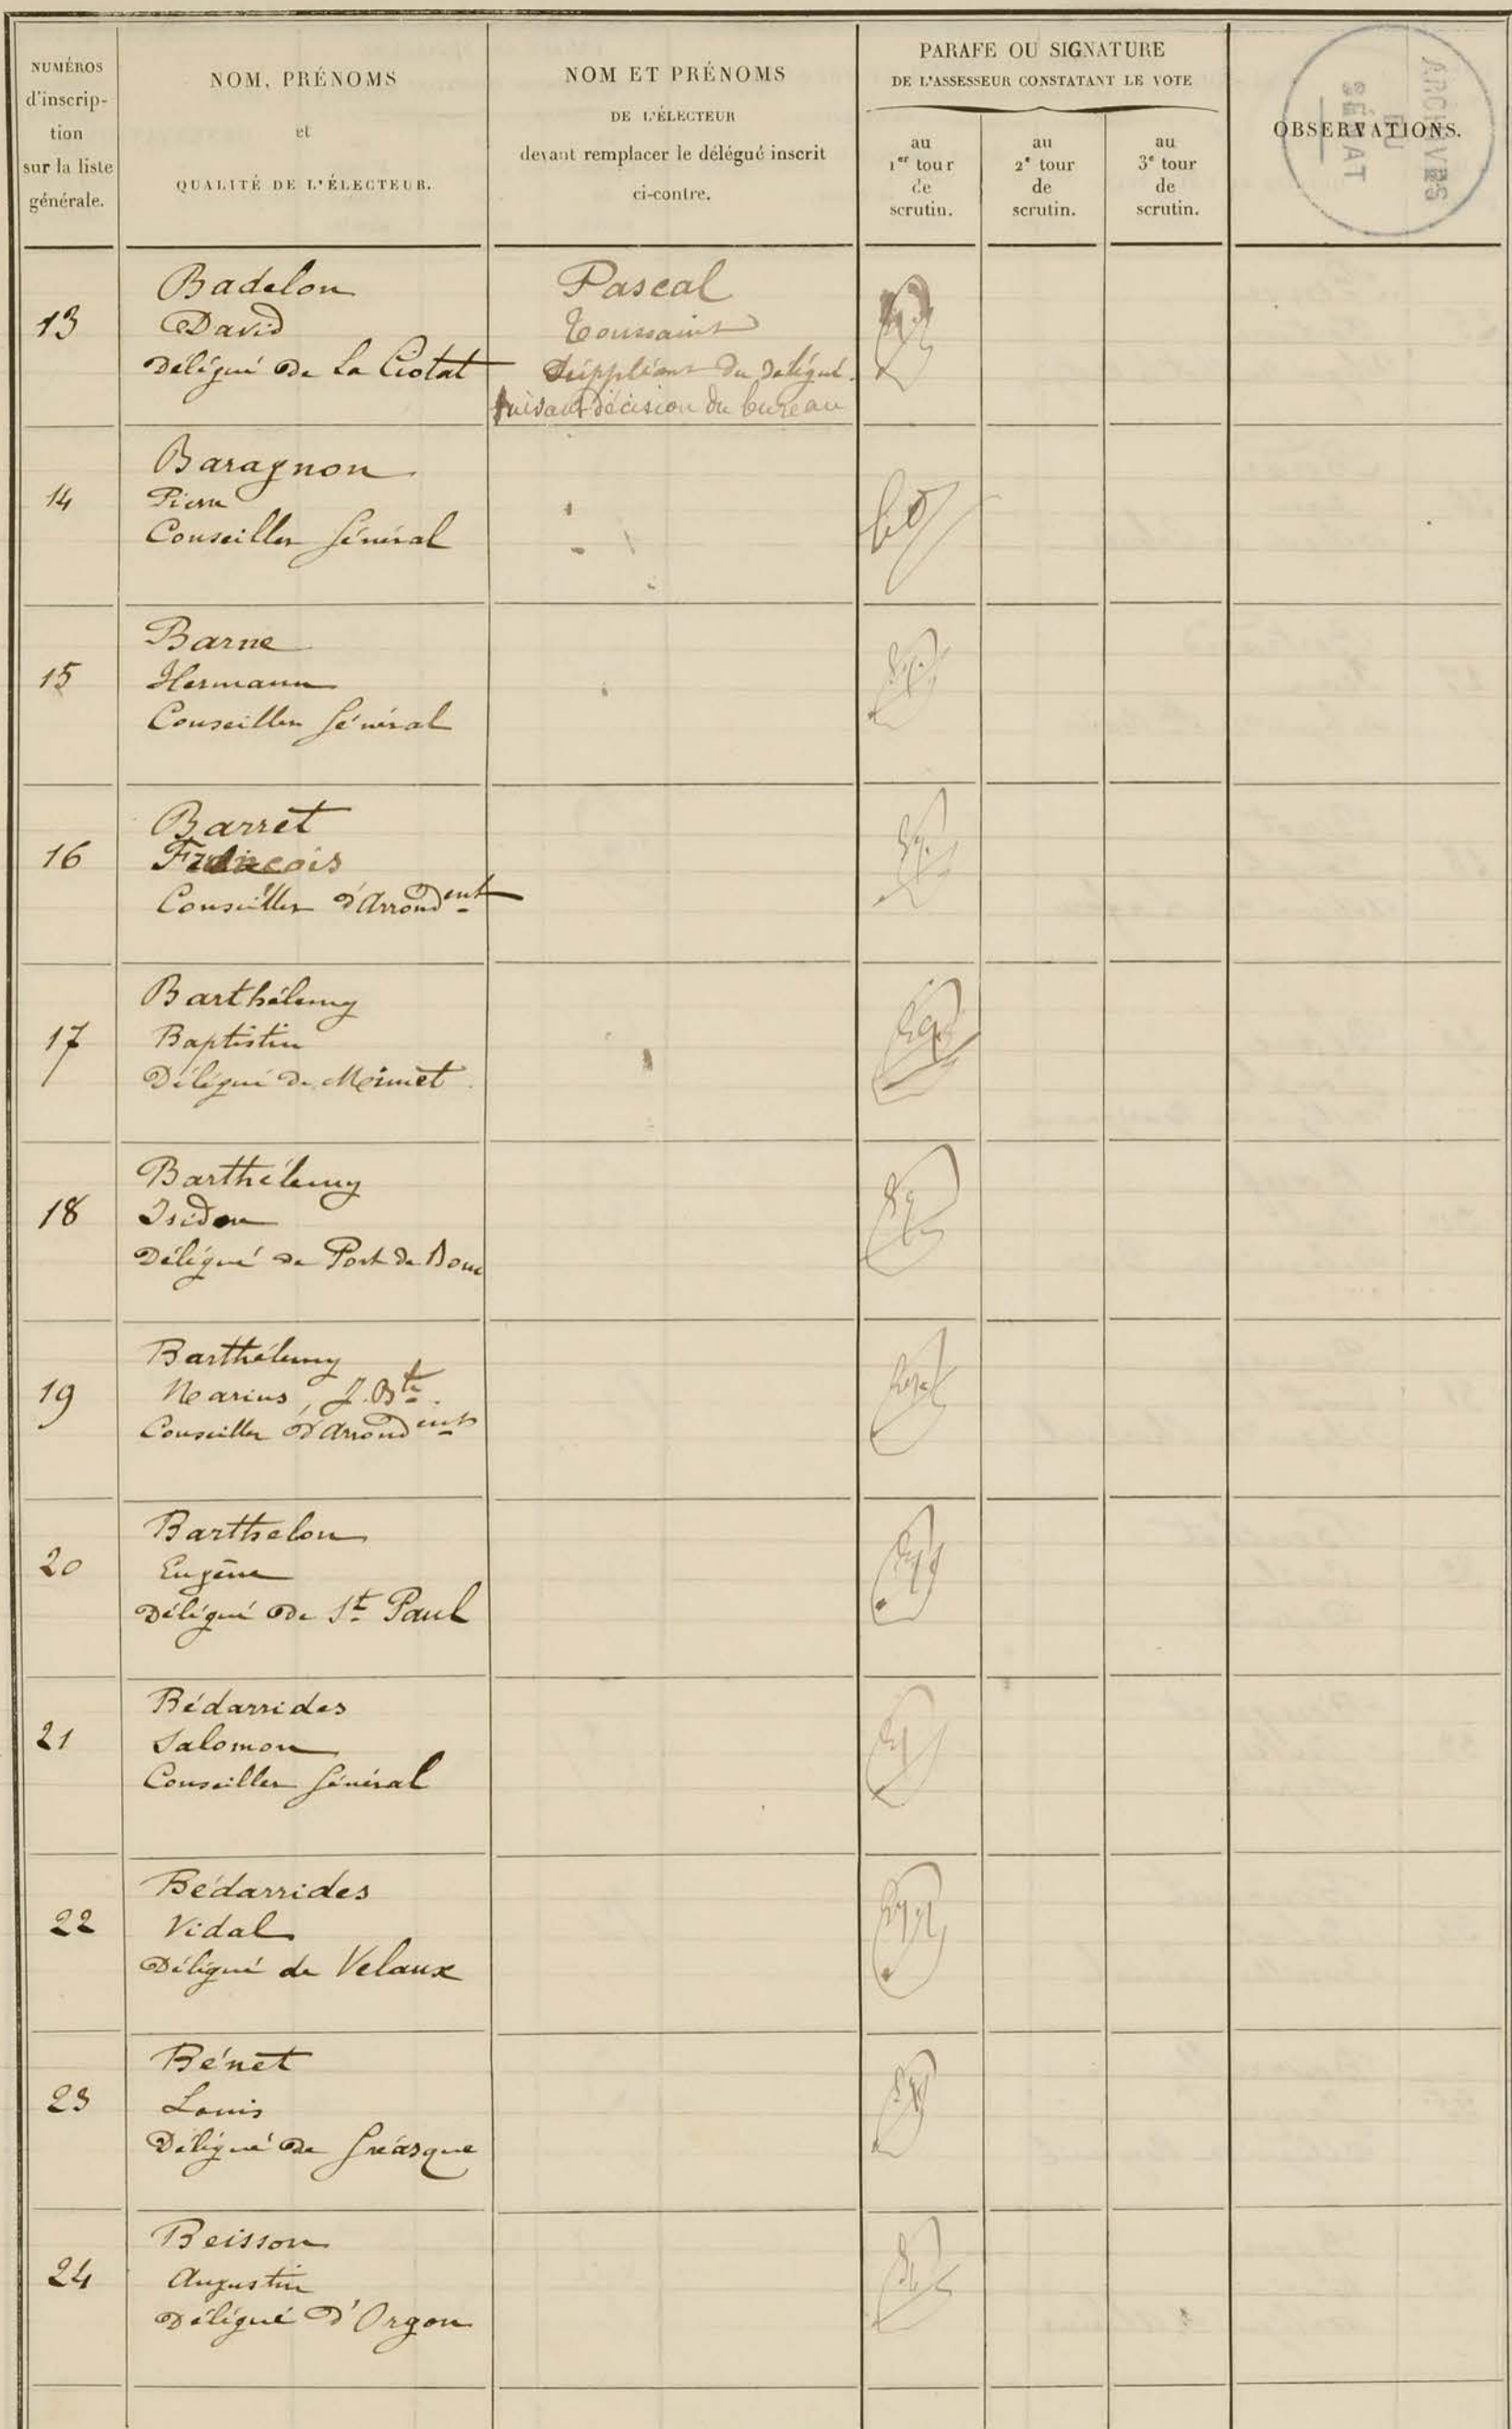 NUMÉROS
d'inscrip-
tion
sur la liste
générale.
NOM, PRÉNOMS
et
QUALITÉ DE L'ÉLECTEUR.
NOM ET PRÉNOMS
DE L'ÉLECTEUR
devant remplacer le délégué inscrit
ci-contre.
PARAFE OU SIGNATURE
DE L'ASSESSEUR CONSTATANT LE VOTE
au
1er tour
de
scrutin.
au
2e tour
de
scrutin.
au
3e tour
de
scrutin.
OBSERVATIONS.
ARCHIVES
DU
SÉNAT
13
Badelon
David
Délégué de La Ciotat
Pascal
Toussaint
Suppléant du délégué.
suivant décision du bureau
14
Baragnon
Pierre
Conseiller Général
15
Barne
Hermann
Conseiller Général
16
Barret
François
Conseiller d'Arrondent
17
Barthélemy
Baptistin
Délégué de Meimet
18
Barthélemy
Isidore
Délégué de Port de Bouc
19
Barthélemy
Marius, J. Bte
Conseiller d'Arrondent
20
Barthelon
Eugène
Délégué de St Paul
21
Bédarrides
Salomon
Conseiller Général
22
Bédarrides
Vidal
Délégué de Velaux
23
Bénet
Louis
Délégué de Gréasque
24
Beisson
Augustin
Délégué d'Orgon